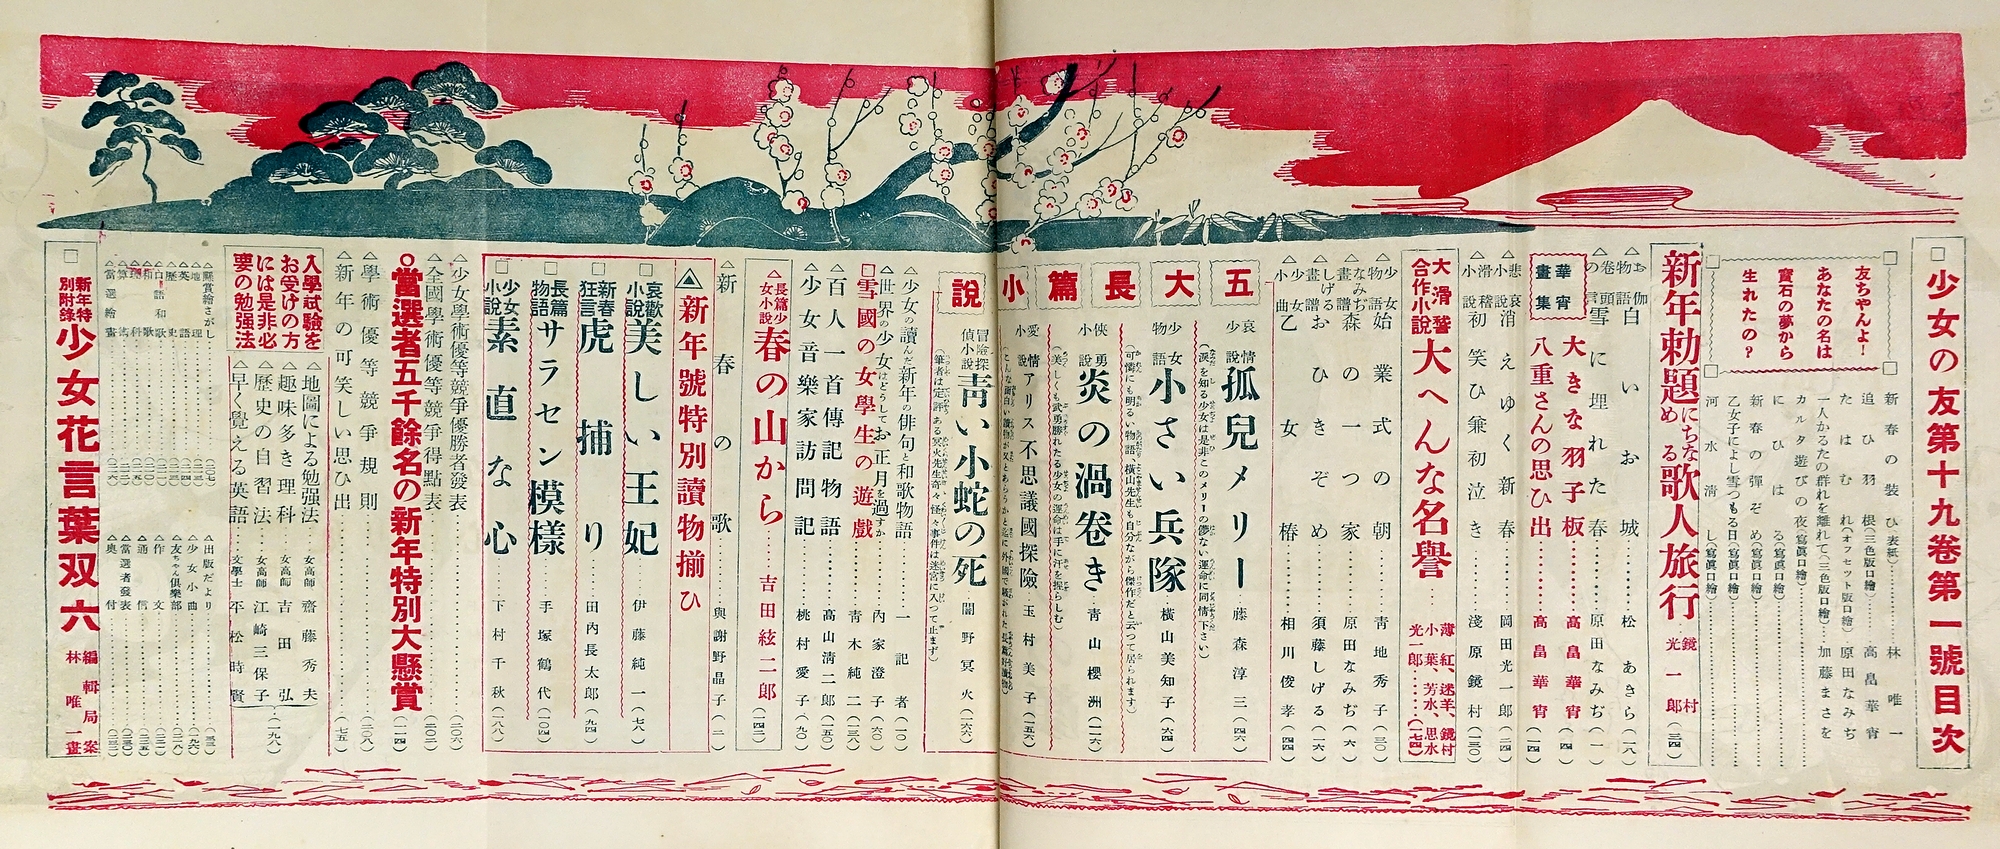 少女の友第十九卷第一號目次
友ちやんよ!
あなたの名は
寶石の夢から
生れたの?
新春の裝ひ(表紙)………林唯一
追ひ羽根(三色版口繪)……高畠華宵
たはむれ(オフセット版口繪)原田なみぢ
一人かるたの群れを離れて(三色版口繪)…加藤まさを
カルタ遊びの夜(寫眞口繪)
にひはる(寫眞口繪)
新春の彈ぞめ(寫眞口繪)
乙女子によし雪つもる日(寫眞口繪)
河水淸し(寫眞口繪)
新年勅題にちなめる歌人旅行 鏡村光一郎(三四)
△お伽物語 白いお城……松あきら(一八)
△卷頭の言 雪に埋れた春……原田なみぢ(一)
華宵畫集
大きな羽子板……高畠華宵(四)
八重さんの思ひ出……高畠華宵(一四)
△悲哀小說 消えゆく新春……岡田光一郎(二四)
△滑稽小說 初笑ひ兼初泣き……淺原鏡村(一三〇)
大滑稽合作小說 大へんな名譽 薄紅、迷羊、鏡村 小葉、芳水、思水 光一郎……(一七四)
△少女物語 始業式の朝……靑地秀子(三〇)
△なみぢ畫譜 森の一つ家……原田なみぢ(六)
△しげる畫譜 おひきぞめ……須藤しげる(一六)
△少女小曲 乙女椿……相川俊孝(四四)
五大長篇小說
哀情少說 孤兒メリー 藤森淳三(四六)
(淚を知る少女は是非このメリーの儚ない運命に同情下さい)
少女物語 小さい兵隊 橫山美知子(六四)
(可憐にも明るい物語、橫山先生も自分ながら傑作だと云つて居られます)
俠勇小說 炎の渦卷き 靑山櫻洲(二一六)
(美しくも武勇勝れたる少女の運命は手に汗を握らしむ)
愛情小說 アリス不思議國探險 玉村美子(一五六)
冒險探偵小說 靑い小蛇の死 闇野冥火(一六六)
(筆者は定評ある冥火先生奇々怪々事件は迷宮に入つて止まず)
△少女の讀んだ新年の俳句と和歌物語……一記者(一〇)
△世界の少女はどうしてお正月を過すか……內家澄子(六〇)
□雪國の女學生の遊戲……靑木純二(一三八)
△百人一首傳記物語……高山淸二郎(一五〇)
△少女音樂家訪問記……桃村愛子(九〇)
長篇少女小說 春の山から……吉田絃二郎(一四二)
△新春の歌……與謝野晶子(二)
△新年號特別讀物揃ひ
□哀歡小說 美しい王妃……伊藤純一(七八)
□新春狂言 虎捕り……田內長太郞(九四)
□長篇物語 サラセン模樣……手塚鶴代(一〇四)
□少女小說 素直な心……下村千秋(一八八)
△少女學術優等競爭優勝者發表……(二〇六)
△全國學術優等競爭得點表……(二〇二)
○當選者五千餘名の新年特別大懸賞(二一四)
△學術優等競爭規則……(二〇八)
△新年の可笑しい思ひ出……(七五)
入學試驗をお受けの方には是非必要の勉强法
△地圖による勉强法……女高師 齋藤秀夫
△趣味多き理科……女高師 吉田弘
△歷史の自習法……女高師 江崎三保子
△早く覺える英語……女學士 平松時賢
(一九八)
△懸賞繪さがし
△地理
△英語
△歷史
△口語和歌
△和歌
△理科
△算術
△當選繪畫
△出版だより
△少女小曲
△友ちやん俱樂部
△作文
△通信
△當選者發表
△奧付
□新年特別附錄 少女花言葉双六 編輯局案 林唯一畫